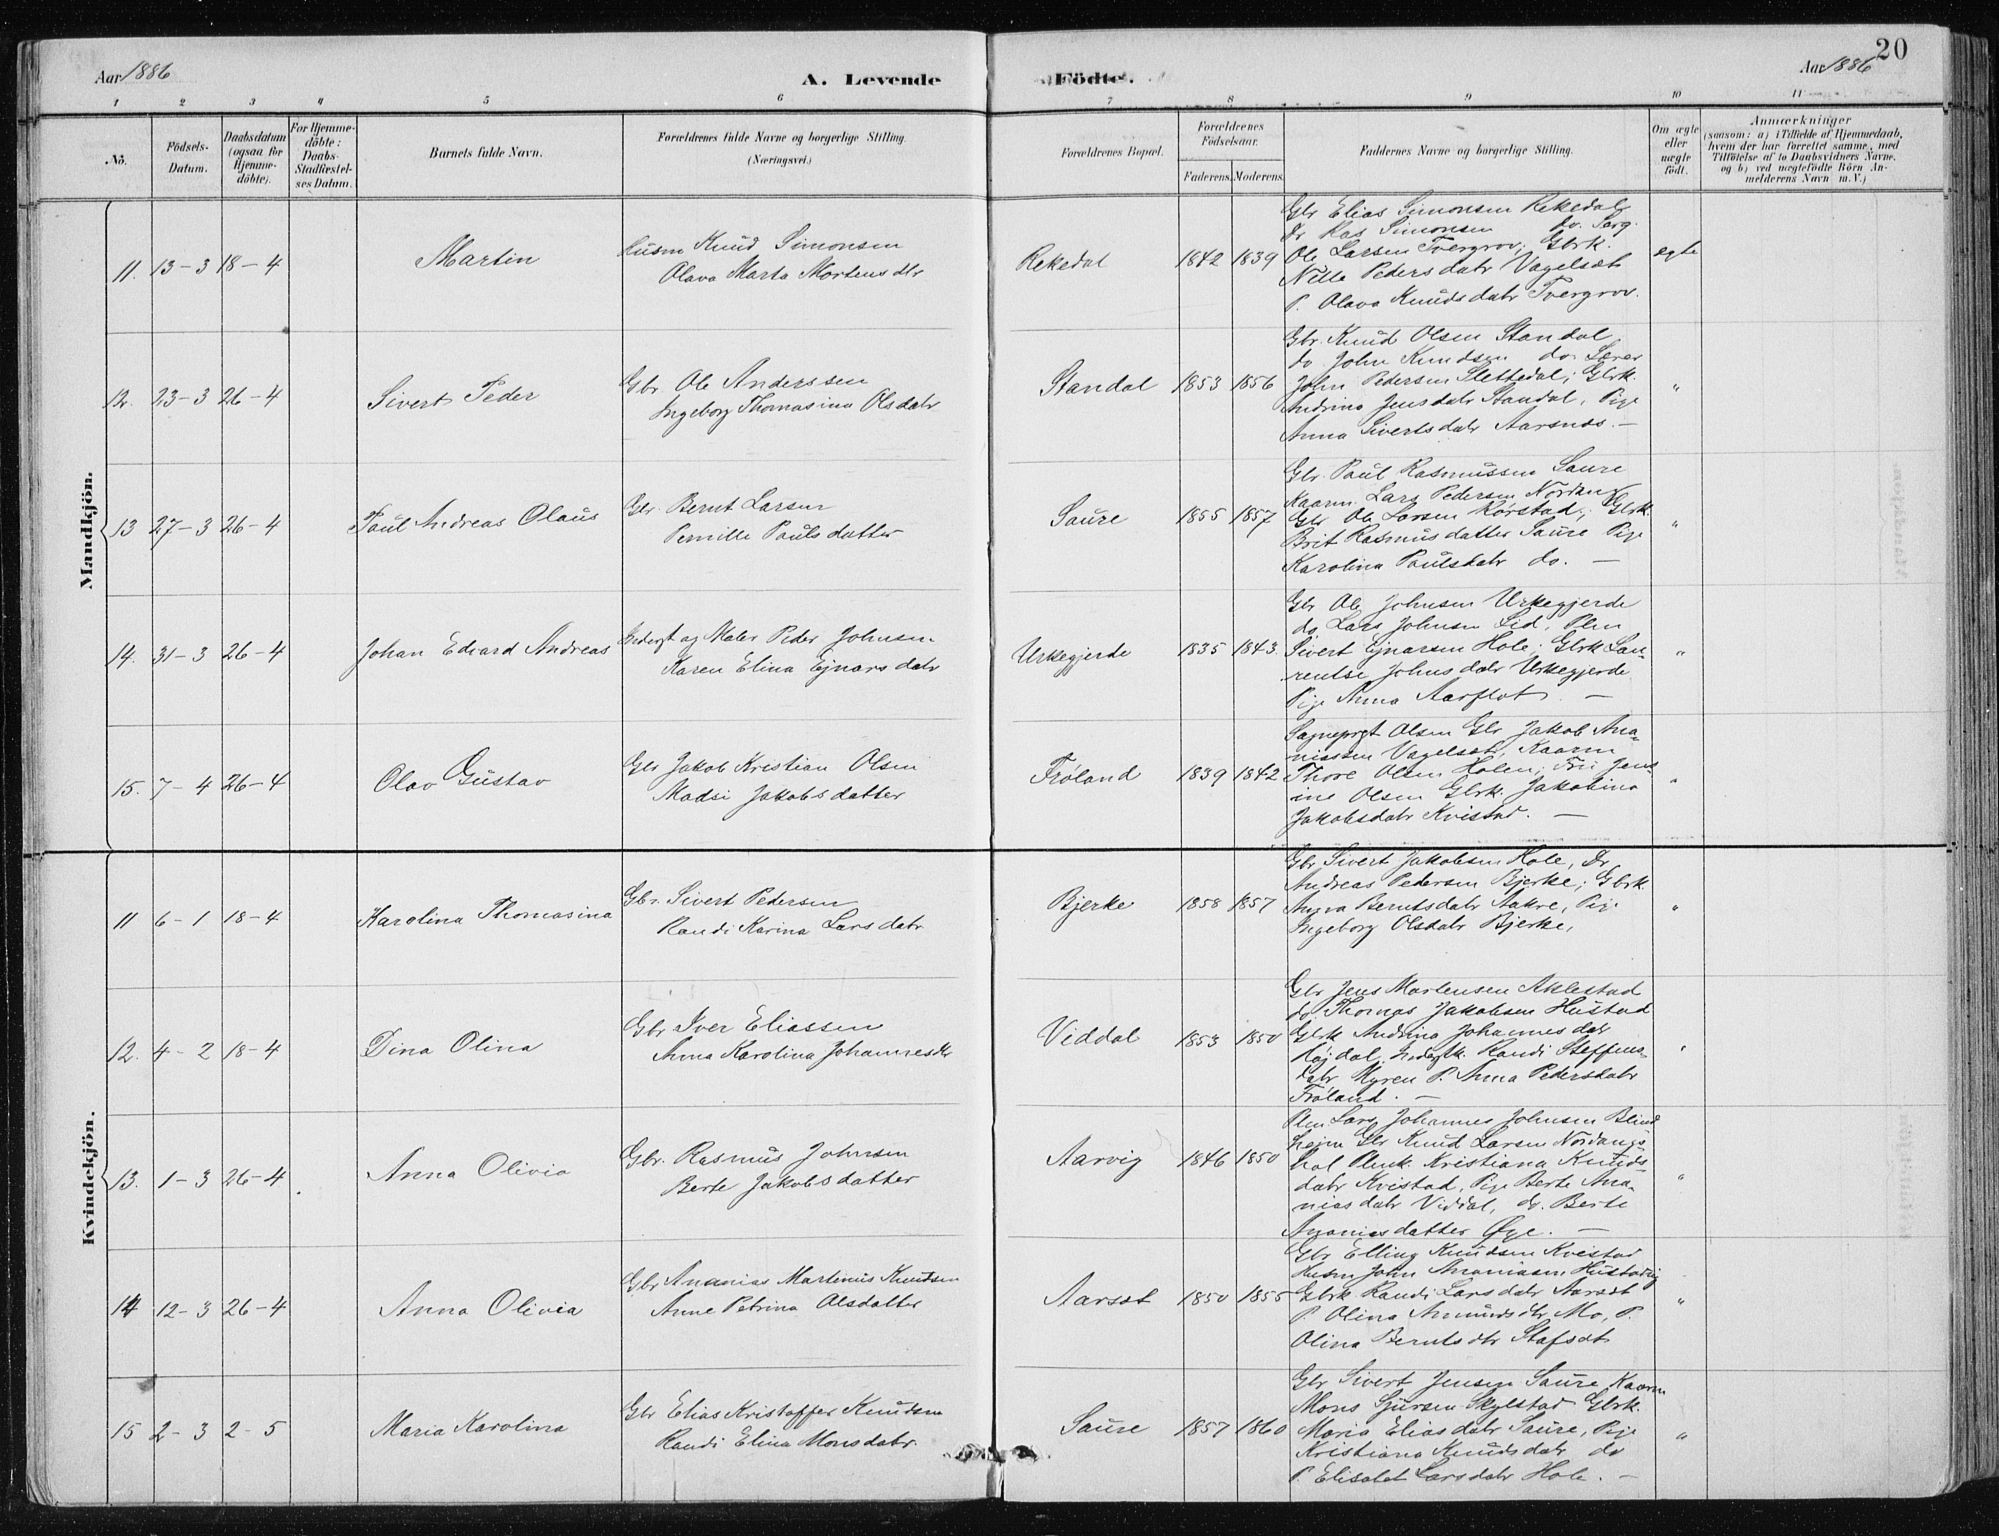 Aar 1886
A. Levende
Födte.
Aar 1886
20
1 2 3 4 5 6 7 8 9 10 11
No.
Födsels-Datum.
Daabsdatum (ogsaa for Hjemme-döbte).
For Hjemme-döbte: Daabs-Stadfæstel-ses Datum.
Barnets fulde Navn.
Forældrenes fulde Navne og borgerlige Stilling. (Næringsvei.)
Forældrenes Bopæl.
Forældrenes Födselsaar.
Faderens. Moderens.
Faddernes Navne og borgerlige Stilling.
Om ægte eller uægte födt.
Anmærkninger
(saasom: a) i Tilfælde af Hjemmedaab,
hvem der har forrettet samme, med
Tilföielse af to Daabsvidners Navne,
og b) ved uægtefödte Börn An-
melderens Navn m. V.)
Mandkjön.
11. 13-3 18-4 Martin
Husm Knud Simonsen
Olava Marta Mortensdtr
Rekedal 1842 1839
Gbr Elias Simonsen Rekedal
Dr Ras Simonsen do. Sørg.
Ole Larsen Tvergrov; Gbrk.
Nille Pedersdatr Vagelsæt
P. Olava Knudsdatr Tvergrov.
egte
12. 23-3 26-4 Sivert Peder
Gbr Ole Anderssen
Ingeborg Thomasina Olsdatr
Standal 1853 1856
Gbr. Knud Olsen Standal
do John Knudsen do. Lærer
John Pedersen Slettedal; Gbrk.
Andrina Jensdatr Standal, Pige
Anna Sivertsdatr Aarsnes. —
"
13 27-3 26-4 Paul Andreas Olaus
Gbr. Bernt Larsen
Pernille Paulsdatter
Saure 1855 1857
Gbr. Paul Rasmussen Saure
Kaarm. Lars Pedersen Nordang
Gbr Ole Larsen Rørstad; Gbrk.
Brit Rasmusdatter Saure Pige
Karolina Paulsdatr do. —
"
14. 31-3 26-4 Johan Edvard Andreas
Inderst og Maler Peder Johnsen
Karen Elina Ejnarsdatr
Urkegjerde 1835 1843.
Gbr Ole Johnsen Urkegjerde
do Lars Johnsen Lid; Plm
Sivert Ejnarsen Hole; Gbrk Lau-
rentse Johnsdatr Urkegjerde
Pige Anna Aarflot. —
"
15. 7-4 26-4 Olav Gustav
Gbr Jakob Kristian Olsen
Madsi Jakobsdatter
Frøland 1839 1842
Sogneprst Olsen Gbr Jakob Ana-
niassen Vagelsæt, Kaarm
Thore Olsen Holen; Fru Jens-
ine Olsen Gbrk. Jakobina
Jakobsdatr Kvistad. —
"
Kvindekjön.
11 6-1 18-4 Karolina Thomasina
Gbr. Sivert Pedersen
Randi Karina Larsdatr
Bjerke 1858 1857
Gbr Sivert Jakobsen Hole, Dr
Andreas Pedersen Bjerke; Gbrk.
Anna Berntsdatr Aakre, Pige
Ingeborg Olsdatr Bjerke,
"
12. 4-2 18-4 Dina Olina
Gbr Iver Eliassen
Anna Karolina Johannesdr
Viddal 1853 1850
Gbr Jens Mortensen Aklestad
do. Thomas Jakobsen Hustad
Gbrk Andrina Johannesdatr
Højdal, Inderstk. Randi Steffens-
datr Myren P. Anna Pedersdatr
Frøland. —
"
13. 1-3 26-4 Anna Olivia
Gbr. Rasmus Johnsen
Berte Jakobsdatter
Aarvig 1846 1850
Plm Lars Johannes Johnsen Blind
heim Gbr Knud Larsen Nordangs
dal Plmk. Kristiana Knuds-
datr Kvistad, Pige Berte Ana-
niasdatr Viddal, do. Berte
Ananiasdatter Øye. —
"
14 12-3 26-4 Anna Olivia
Gbr Ananias Martinus Knudsen
Anne Petrina Olsdatter
Aarsæt 1850 1855
Gbr Elling Knudsen Kvistad
Husm John Ananiasen Hustadvig
Gbrk Randi Larsdatr Aarsæt
P. Olina Amundsdtr Mo, P.
Olina Berntsdtr Stafsæt
"
15 2-3 2-5 Maria Karolina
Gbr Elias Kristoffer Knudsen
Randi Elina Monsdatr.
Saure 1857 1860
Gbr Sivert Jensen Saure Kaarm
Mons Sjursen Skylstad Gbrk.
Maria Eliasdatr Saure, Pige
Kristiana Knudsdatr do
P. Elisabet Larsdatr Hole. —
"